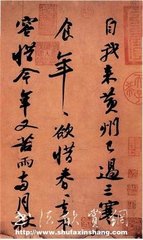 自我来黄州已過三寒
食年〻欲惜春〻去
容惜今年又苦雨兩月
http://www.shufaxinshang.com